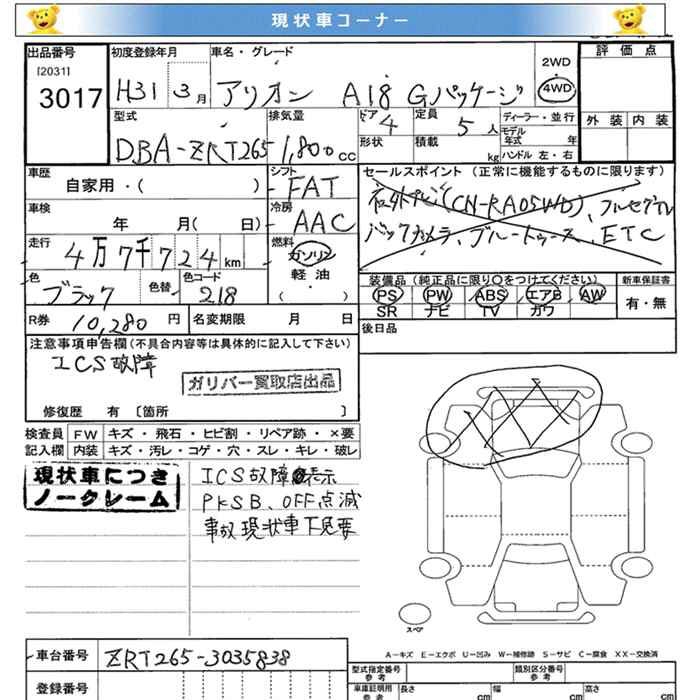 現状車コーナー
出品番号 初度登録年月 車名・グレード 2WD 評価点
[2031] 3017 H31 3月 アリオン A18 Gパッケージ 4WD
型式 排気量 ドア 4 定員 5人 ディーラー・並行 外装 内装
モデル年式 年
DBA-ZRT265 1,800cc 形状 積載 kg ハンドル 左・右
車歴 シフト セールスポイント (正常に機能するものに限ります)
自家用・( ) FAT 社外ナビ(CN-RA05WD)、フルセグTV
車検 冷房 バックカメラ、ブルートゥース、ETC
年 月( 日) AAC
走行 燃料
4万7千724km ガソリン
軽油・ 装備品 (純正品に限り○をつけてください) 新車保証書
色 色替 色コード ( ) PS PW ABS エアB AW 有・無
ブラック 218 SR ナビ TV カワ
R券 10,280円 名変期限 月 日 後日品
注意事項申告欄(不具合内容等は具体的に記入して下さい)
ICS故障
ガリバー買取店出品
修復歴 有 [箇所 ]
検査員 FW キズ・飛石・ヒビ割・リペア跡・×要
記入欄 内装 キズ・汚レ・コゲ・穴・スレ・キレ・破レ
現状車につき ICS故障表示
ノークレーム PKSB、OFF点滅
事故現状車下見要
スペア
A－キズ E－エクボ U－凹み W－補修跡 S－サビ C－腐食 XX－交換済
車台番号 ZRT265-3035838 型式指定番号 類別区分番号
参考 参考
登録番号 車庫証明用 長さ 幅 高さ
参考 cm cm cm